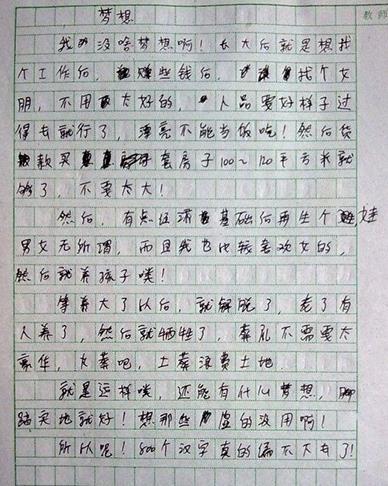 教师
梦想
我没啥梦想啊！长大后就是想找
个工作后，赚些钱后，找个女
朋，不用太好的，人品要好样子过
得去就行了，漂亮不能当饭吃！然后贷
款买套房子100~120平方米就
够了，不要太大！
然后，有点经济基础后再生个娃
男女无所谓，而且我也比较喜欢女的，
然后就养孩子喽！
等养大了以后，就解脱了，老了有
人养了，然后就牺牲了，葬礼不需要太
豪华，火葬吧，土葬浪费土地．
就是这样喽，还能有什么梦想，脚
踏实地就好！想那些虚的没用啊！
所以呢！800个汉字真的编不下去了！